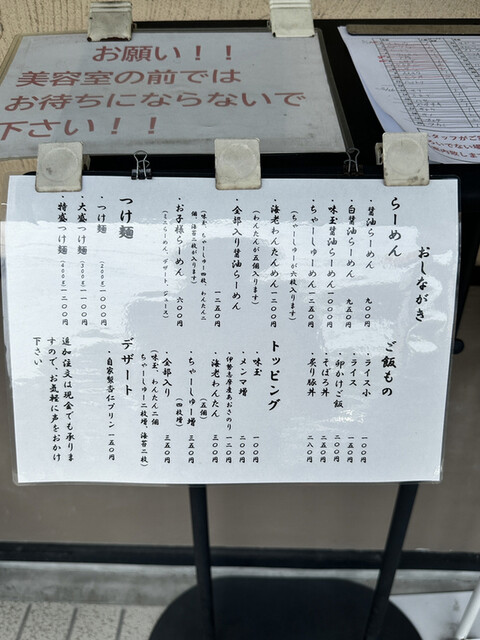 お願い！！
美容室の前では
お待ちにならないで
下さい！！
おしながき
らーめん
・醤油らーめん 九〇〇円
・白醤油らーめん 九五〇円
・味玉醤油らーめん 一〇〇〇円
・ちゃーしゅーめん 一二五〇円
（ちゃーしゅーが六枚入ります）
・海老わんたんめん 一二〇〇円
（わんたんが五個入ります）
・全部入り醤油らーめん
一二五〇円
（味玉、ちゃーしゅー四枚、わんたん二
個、海苔二枚が入ります）
・お子様らーめん 六〇〇円
（ミニらーめん、デザート、ジュース）
つけ麺
・つけ麺（200g）
・大盛つけ麺（300g）
・特盛つけ麺（400g）
ご飯もの
・ライス小 一〇〇円
・ライス 一五〇円
・卵かけご飯 二〇〇円
・そぼろ丼 二五〇円
・炙り豚丼 二八〇円
トッピング
・味玉 一〇〇円
・メンマ増 二〇〇円
・伊勢志摩産あおさのり 一二〇円
・海老わんたん 三〇〇円
（五個）
・ちゃーしゅー増 三五〇円
（四枚増）
・全部入り 三五〇円
（味玉、わんたん二個
ちゃーしゅー二枚増、海苔二枚）
デザート
・自家製杏仁プリン 一五〇円
追加注文は現金でも承りま
すので、お気軽に声をおかけ
下さい